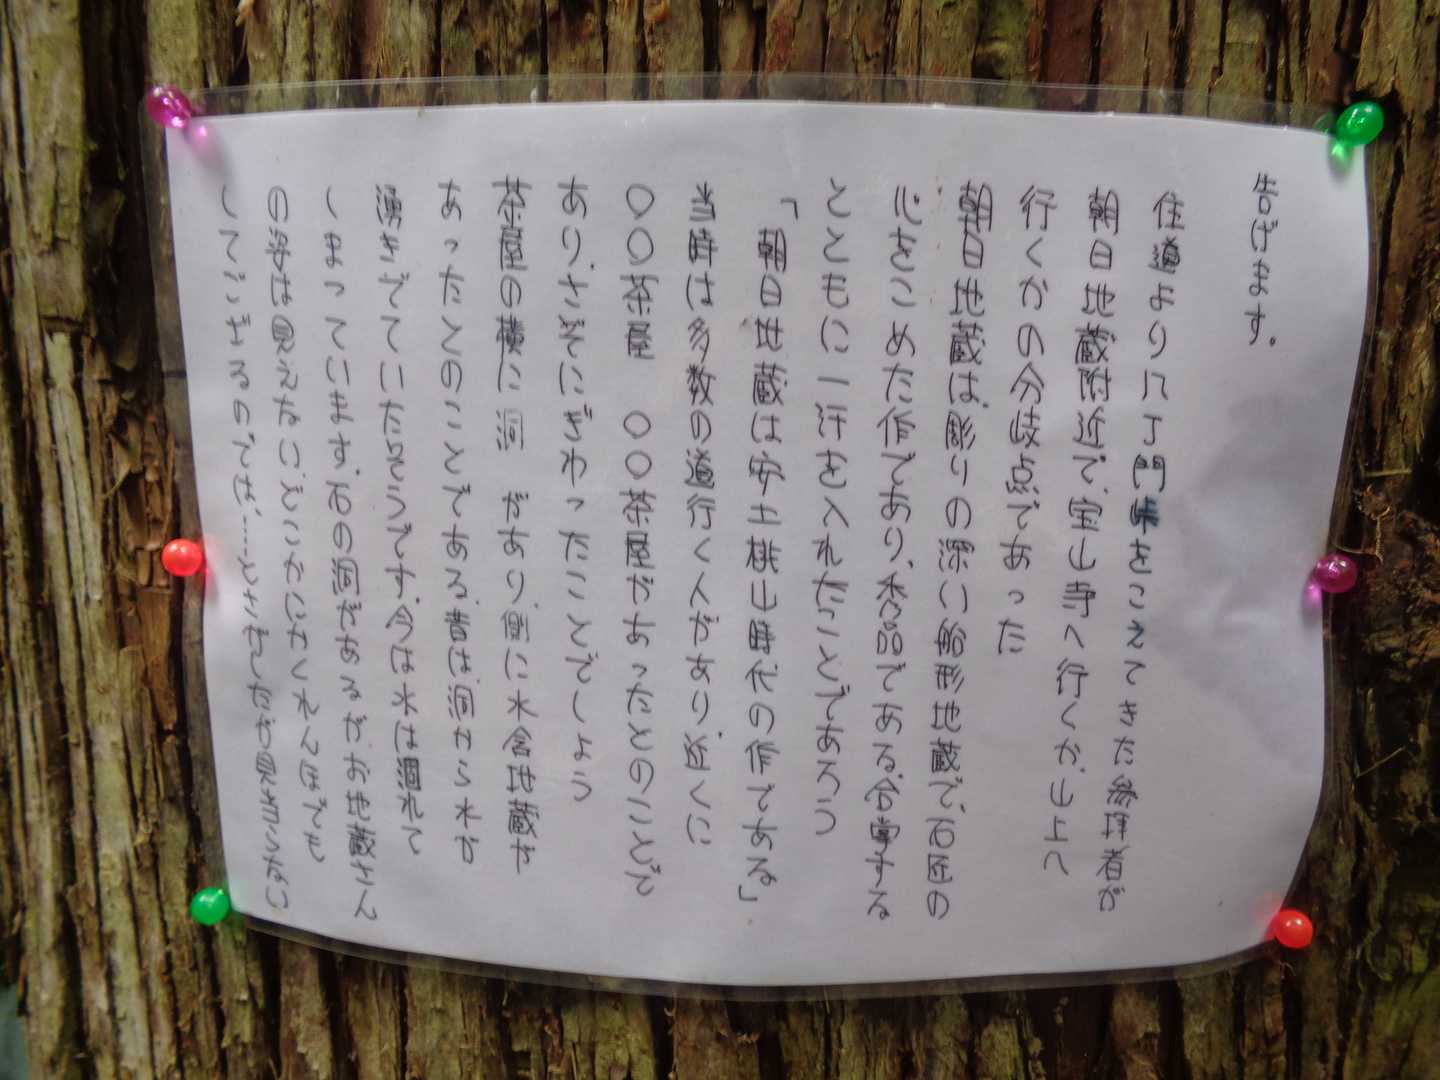 告げます。
住道より八丁門峠をこえてきた修拝者が
朝日地蔵附近で、宝山寺へ行くか山上へ
行くかの分岐点であった
朝日地蔵は、彫りの深い船形地蔵で、石匠の
心をこめた作であり、秀品である。合掌する
とともに一汗を入れたことであろう
「朝日地蔵は安土桃山時代の作である」
当時は多数の道行く人があり、近くに
〇〇茶屋 〇〇茶屋があったとのことで
あり、さぞにぎわったことでしょう
茶屋の横に洞があり、側に水合地蔵が
あったとのことである。昔は洞から水が
湧きでていたようです。今は水は涸れて
しまっています。石の洞がある
しているのでは……